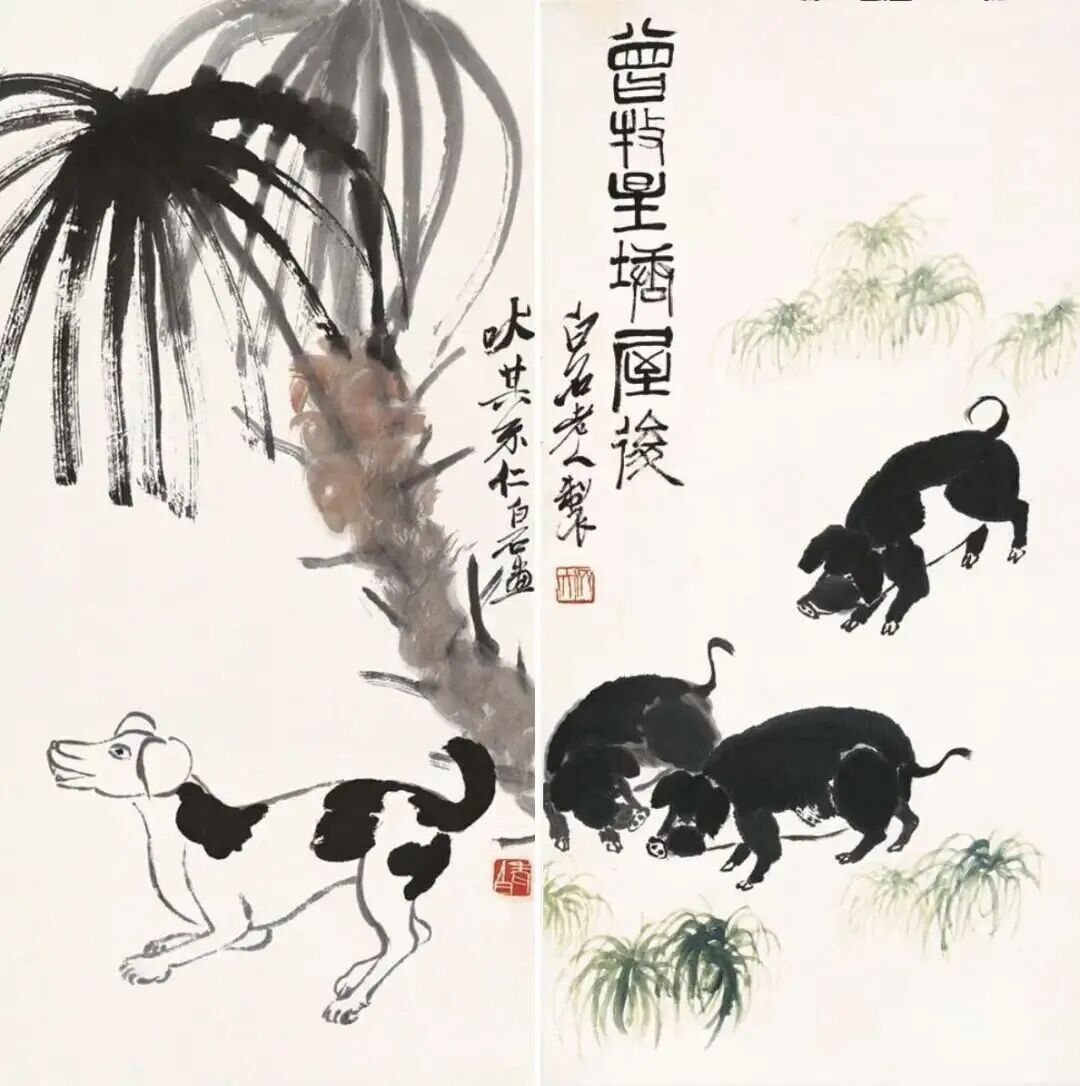 吠其不仁白石畫
曾牧星塘屋後
白石老人製